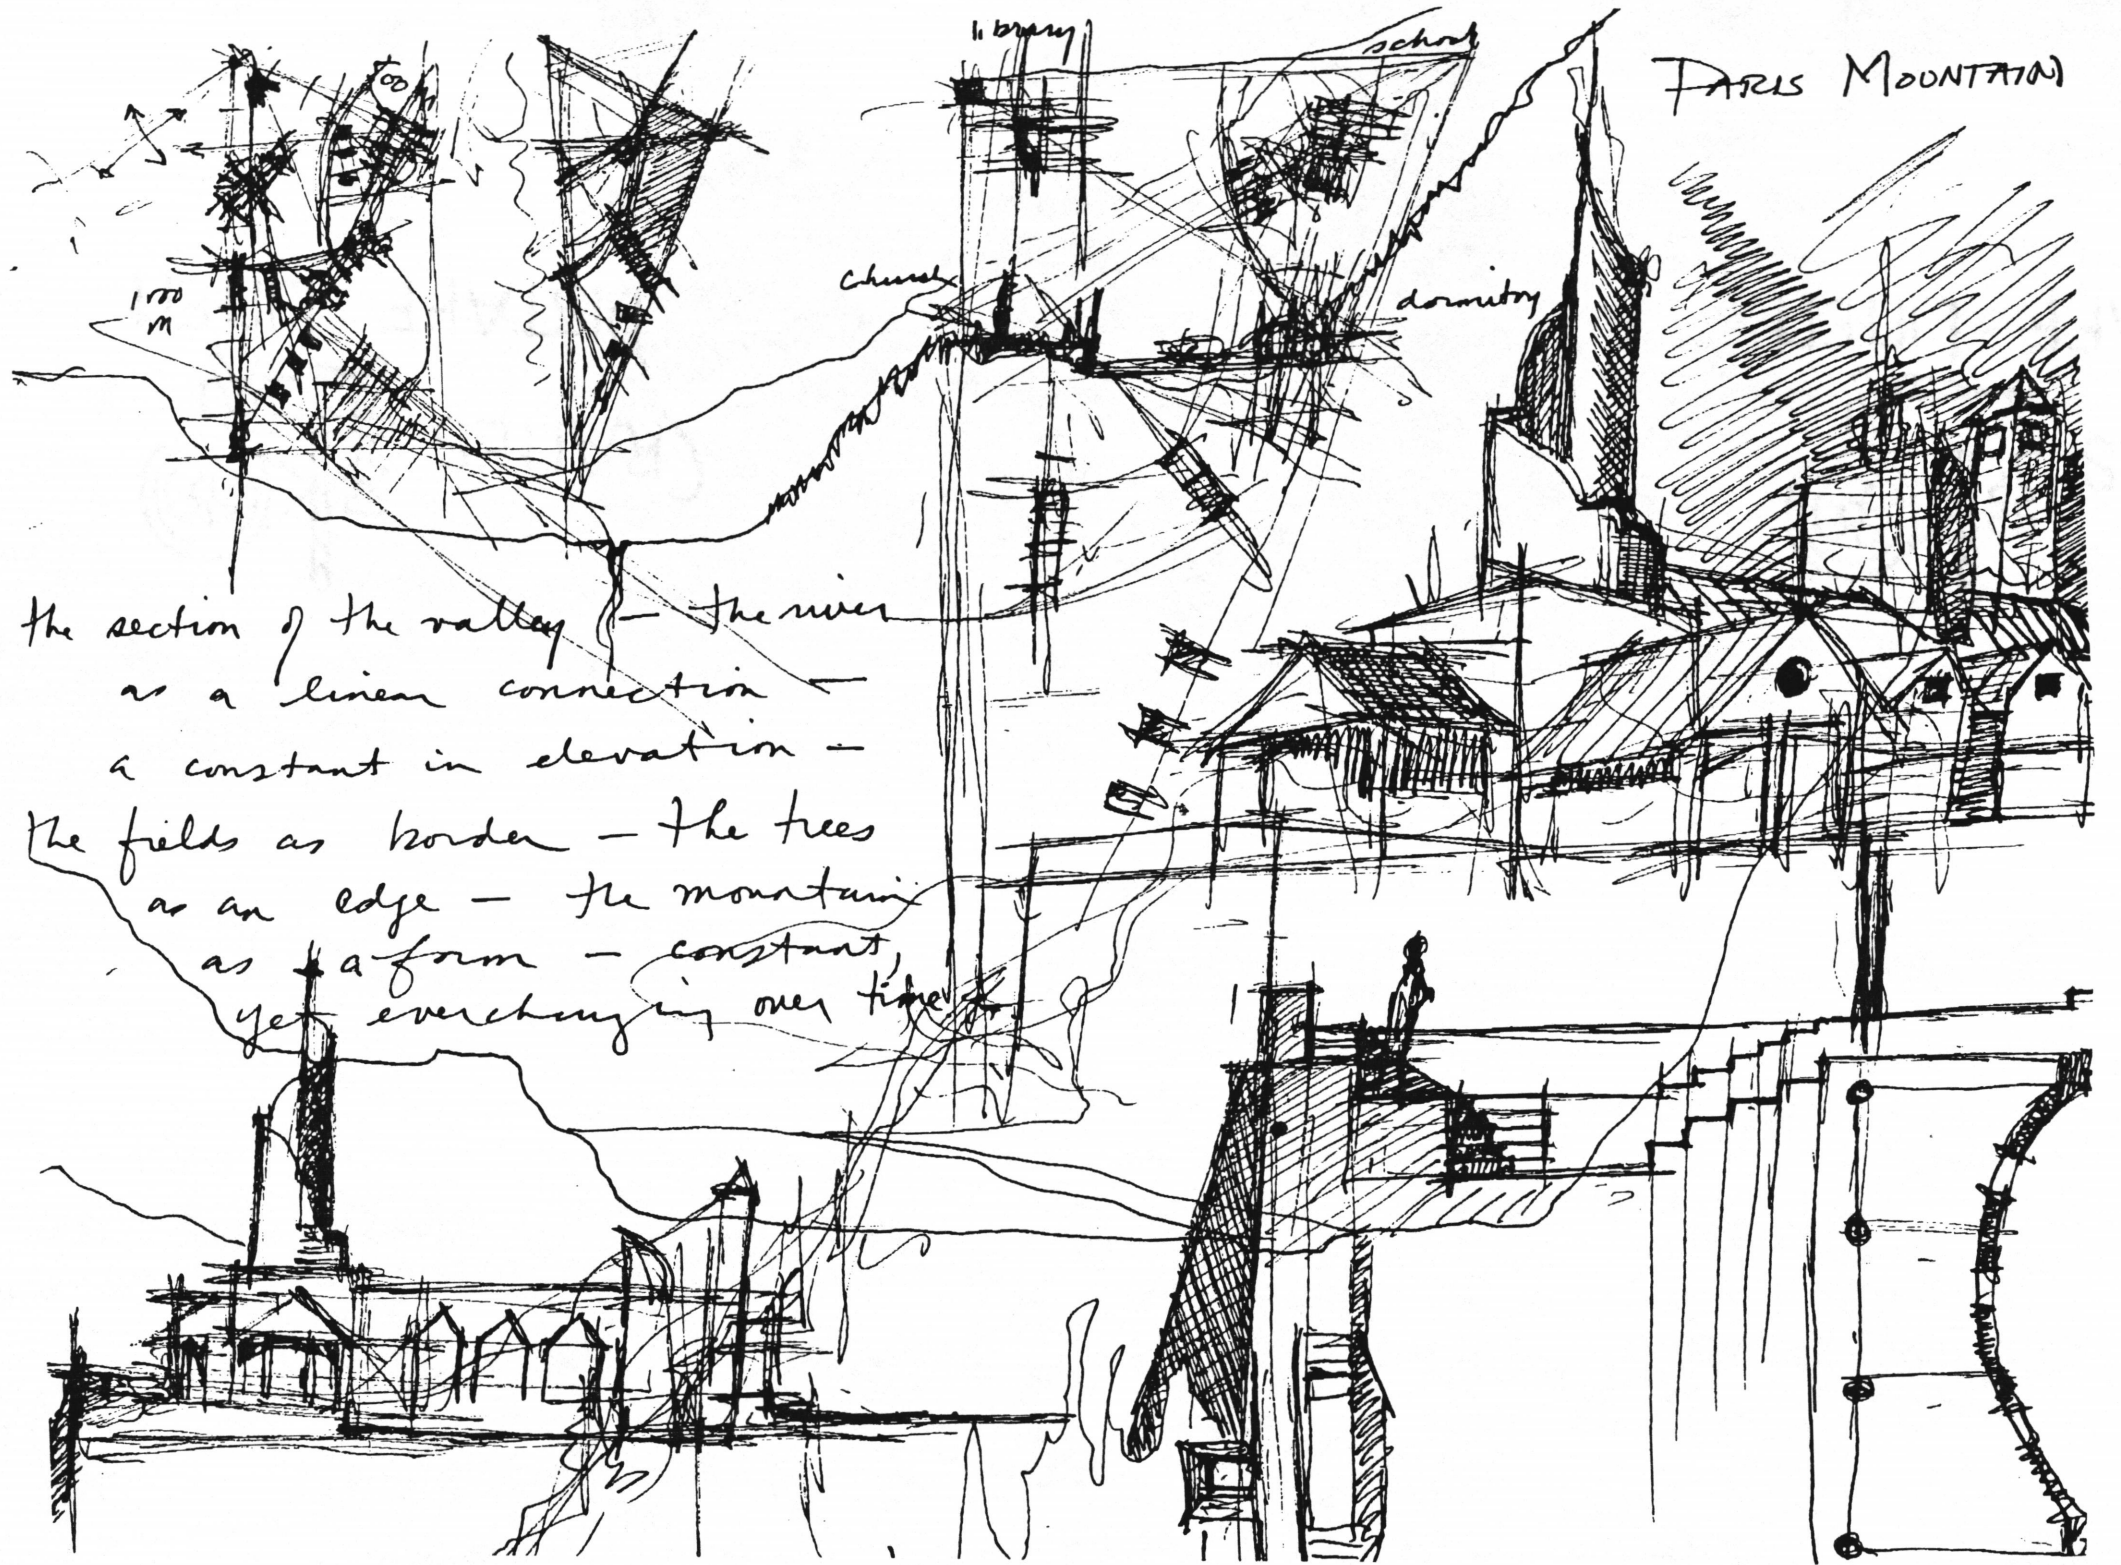 library
school
PARIS MOUNTAIN
church
dormitory
the section of the valley — the river
as a linear connection —
a constant in elevation —
the fields as border — the trees
as an edge — the mountain
as a form — constant,
yet everchanging over time